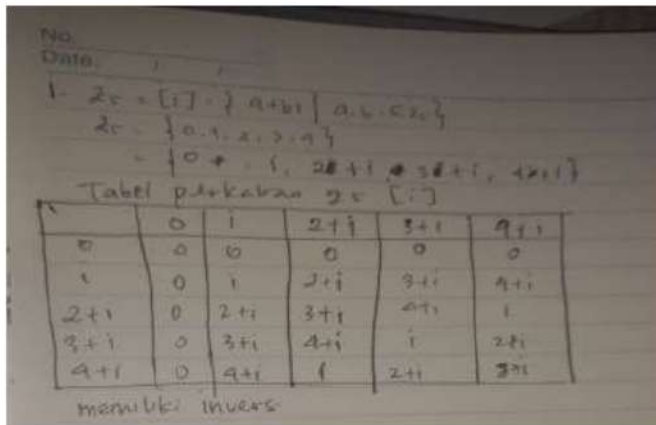 No.
Date.
1. Z5 = [i] = { a+bi | a, b ∈ Z5 }
Z5 = {0, 1, 2, 3, 4}
= {0 i, 2 +i 3 +i, 4+i}
Tabel perkalian Z5 [i]
0 i 2+i 3+i 4+i
0 0 0 0 0 0
i 0 i 2+i 3+i 4+i
2+i 0 2+i 3+i 4+i i
3+i 0 3+i 4+i i 2+i
4+i 0 4+i i 2+i 3+i
memiliki invers